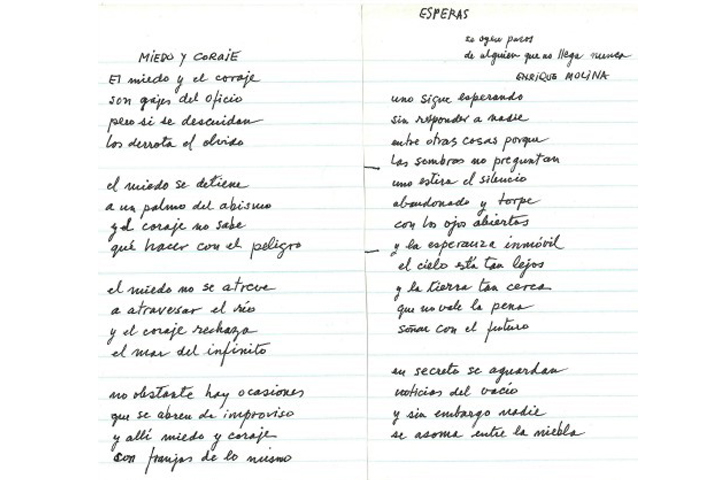 MIEDO Y CORAJE
El miedo y el coraje
son gajes del oficio
pero si se descuidan
los derrota el olvido
el miedo se detiene
a un palmo del abismo
y el coraje no sabe
qué hacer con el peligro
el miedo no se atreve
a atravesar el río
y el coraje rechaza
el mar del infinito
no obstante hay ocasiones
que se abren de improviso
y allí miedo y coraje
son franjas de lo mismo
ESPERAS
se oyen pasos
de alguien que no llega nunca
ENRIQUE MOLINA
uno sigue esperando
sin responder a nadie
entre otras cosas porque
las sombras no preguntan
uno estira el silencio
abandonado y torpe
con los ojos abiertos
y la esperanza inmóvil
el cielo está tan lejos
y la tierra tan cerca
que no vale la pena
soñar con el futuro
en secreto se aguardan
noticias del vacío
y sin embargo nadie
se asoma entre la niebla